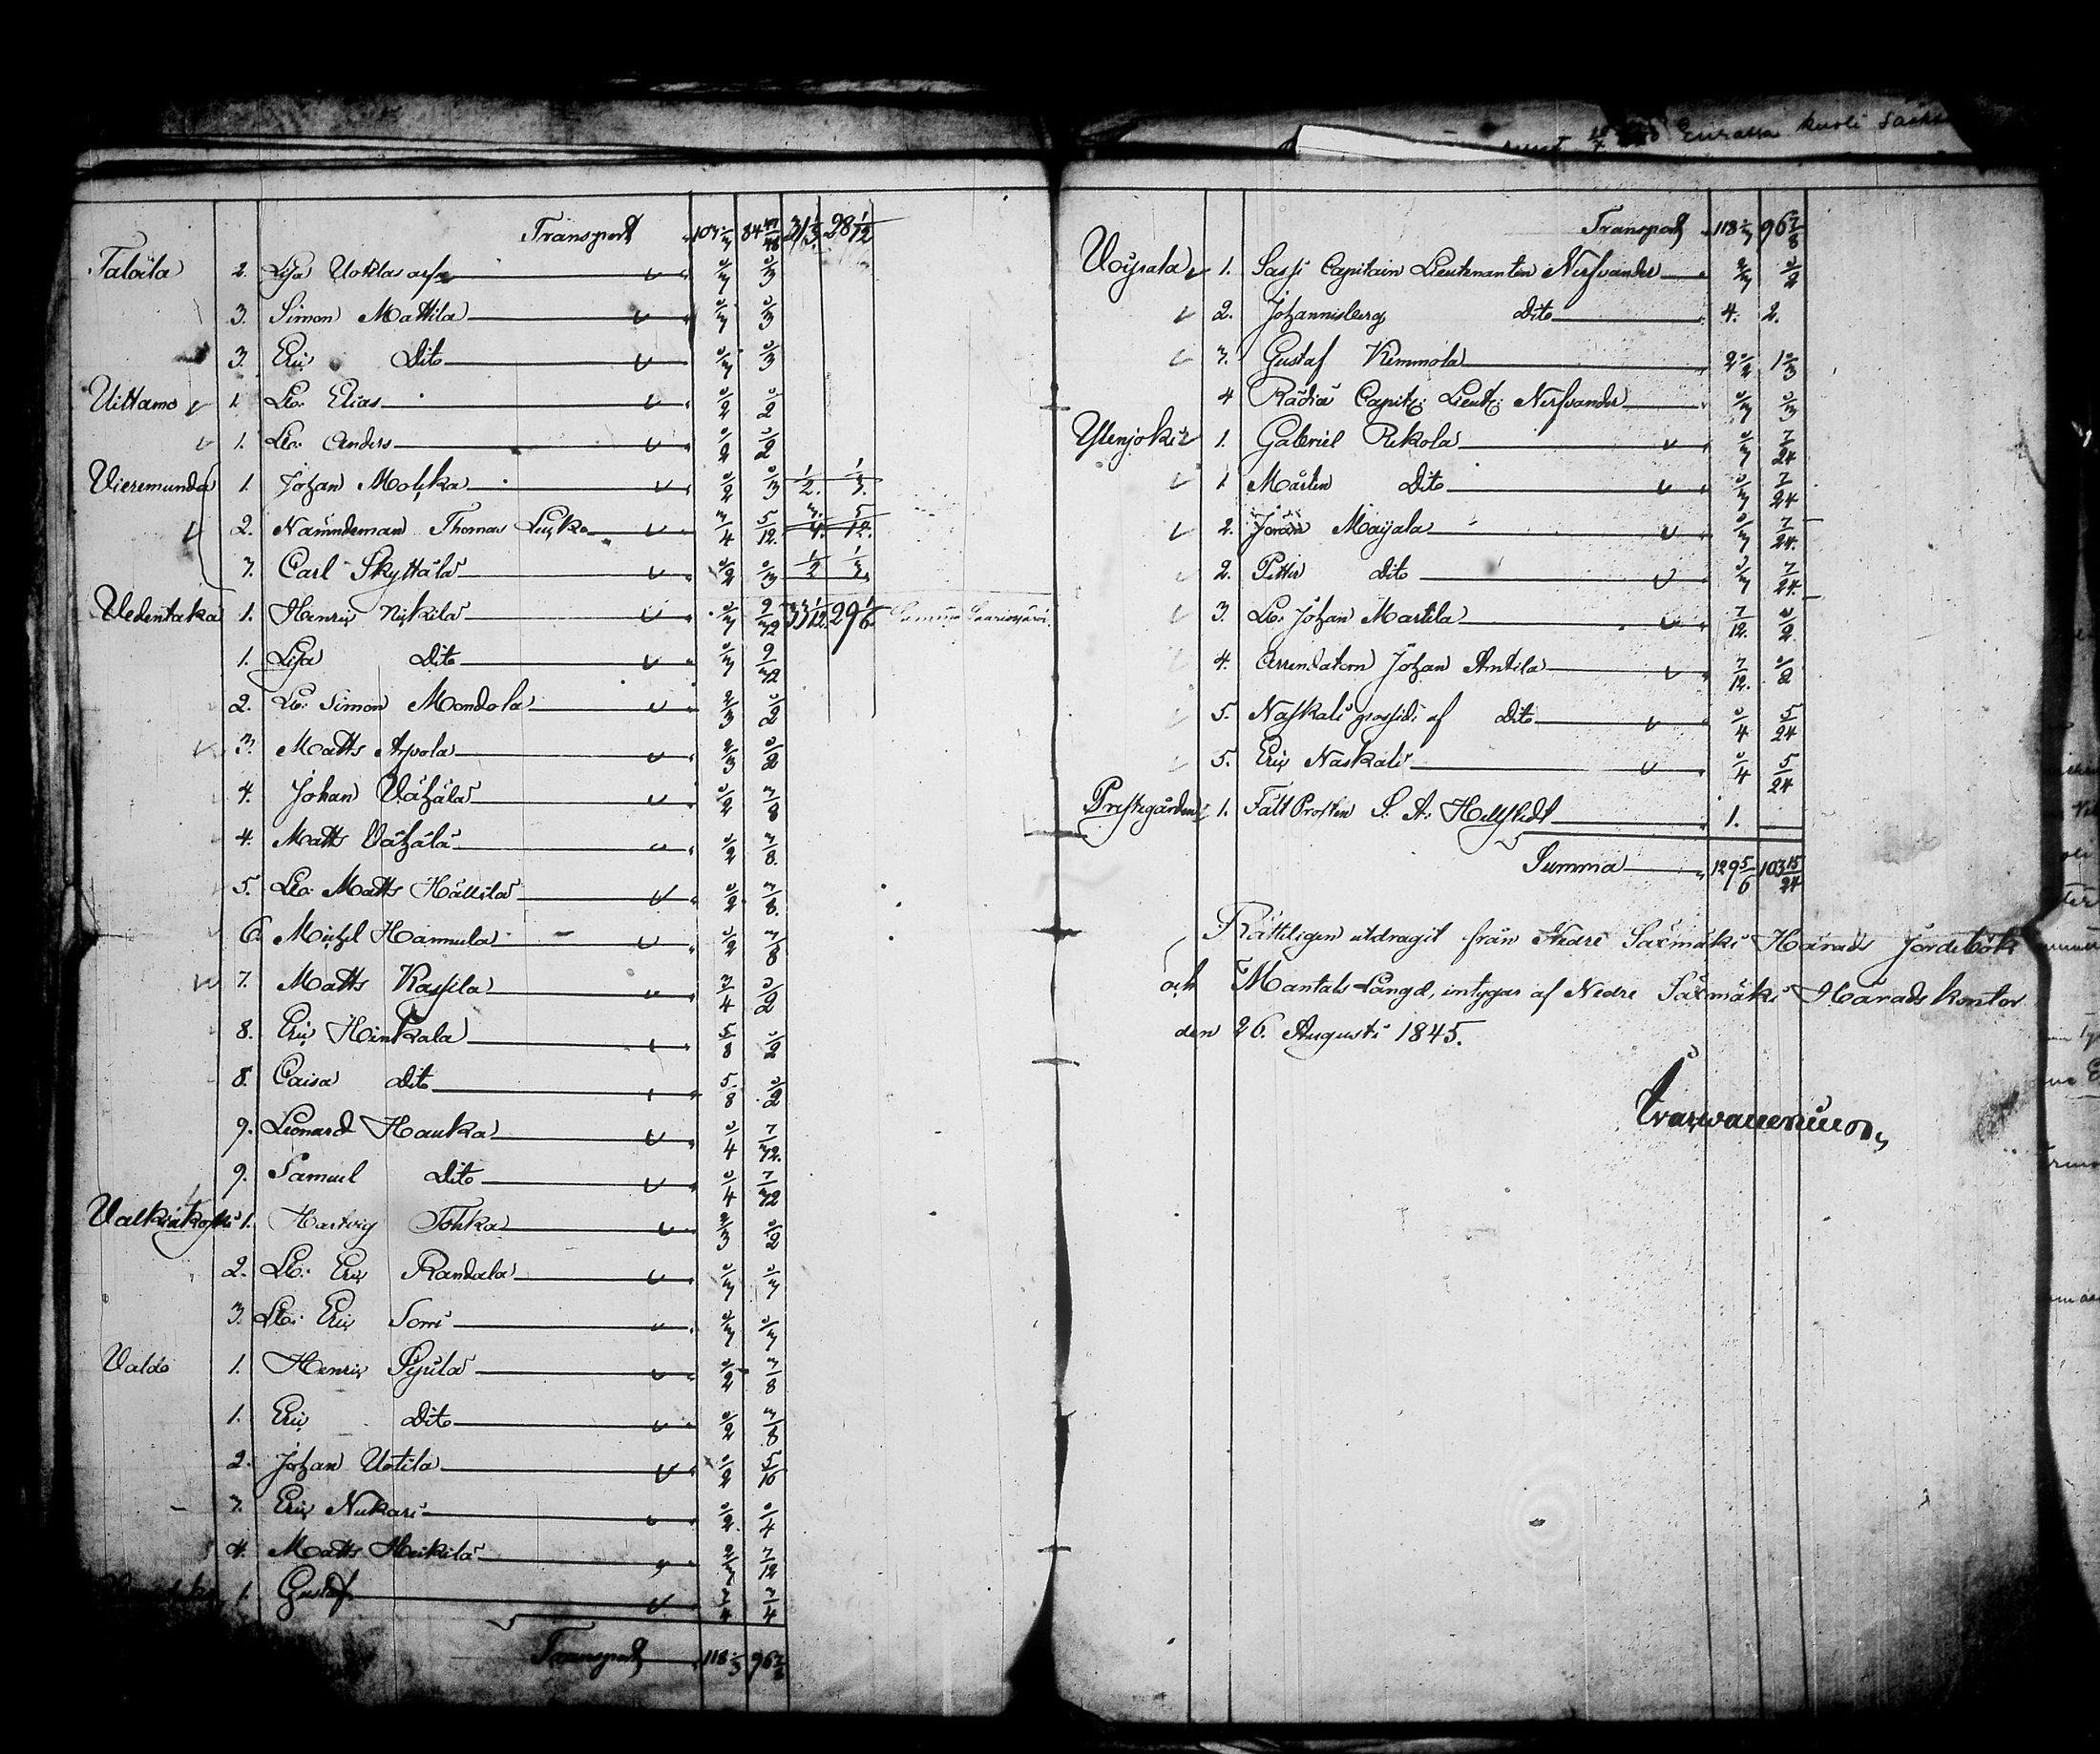 Transport 107 1/3 84 47/48 31 1/3 28 1/12
Taloila 2. Lisa Uotilas arf 1/3 1/3
3. Simon Mattila 1/3 1/3
3. Eric Dito 1/3 1/3
Uittamo 1. Lto: Elias 1/2 1/2
1. Lto: Anders 1/2 1/2
Vieremunda 1. Johan Moiska 1/2 1/3 1/2. 1/3.
2. Nämndeman Thomas Luska 3/4 5/12. 3/4. 5/12.
3. Carl Skyttälä 1/2 1/3 1/2 1/3.
Vedentaka 1. Henric Nickilä 1/3 9/32 33 1/12. 29 1/6. Summa Saarioisjärvi.
1. Lisa Dito 1/3 9/32
2. Lto: Simon Mondola 2/3 1/2
3. Matts Arvola 2/3 1/2
4. Johan Vähälä 1/2 3/8
4. Matts Vähälä 1/2 3/8.
5. Lto: Matts Hällilä 1/2 3/8.
6. Michel Hannula 1/2 3/8
7. Matts Kassila 3/4 1/2
8. Eric Hinkala 5/8 1/2
8. Caisa Dito 5/8 1/2
9. Leonard Hauka 1/4 7/32.
9. Samuel Dito 1/4 7/32
Valkiakoski 1. Hartvig Tohka 2/3 1/2
2. Lto: Eric Randala 1/3 1/3
3. Lto: Eric Somi 1/3 1/3
Valdo 1. Henric Pispilä 1/2 3/8
1. Eric Dito 1/2 3/8
2. Johan Uotila 1/2 5/16
3. Eric Nukari 1/2. 1/4
4. Matts Heikilä 2/3 7/12
1. Gustaf 3/4 3/4
Transport 118 1/3 96 7/8
Transport 118 1/3 96 7/8
Voipala 1. Sassi Capitain Lieutenanten Nerfvander 2/3 1/2
2. Johannisberg Dito 4. 2.
3. Gustaf Kimmola 2 1/2 1 1/3
4 Rädiä Capit: Lieut: Nerfvander 1/3 1/3
Ylenjoki 1. Gabriel Rekola 1/3 7/24
1. Mårten Dito 1/3 7/24
2. Joran Maijala 1/3 7/24.
2. Petter Dito 1/3 7/24.
3. Lto: Johan Martila 7/12. 1/2.
4. Arrendatorn Johan Antila 7/12. 1/2
5. Naskali Dito 1/4 5/24
5. Eric Naskali 1/4 5/24
Prestegården 1. Fält Prosten S. A. Hellstedt 1.
Summa 129 5/6 103 15/24
Rätteligen utdragit från Nedre Säxmäki Härads Jordebok
och Mantals Längd, intygar af Nedre Säxmäki Härads kontor
den 26. Augusti 1845.